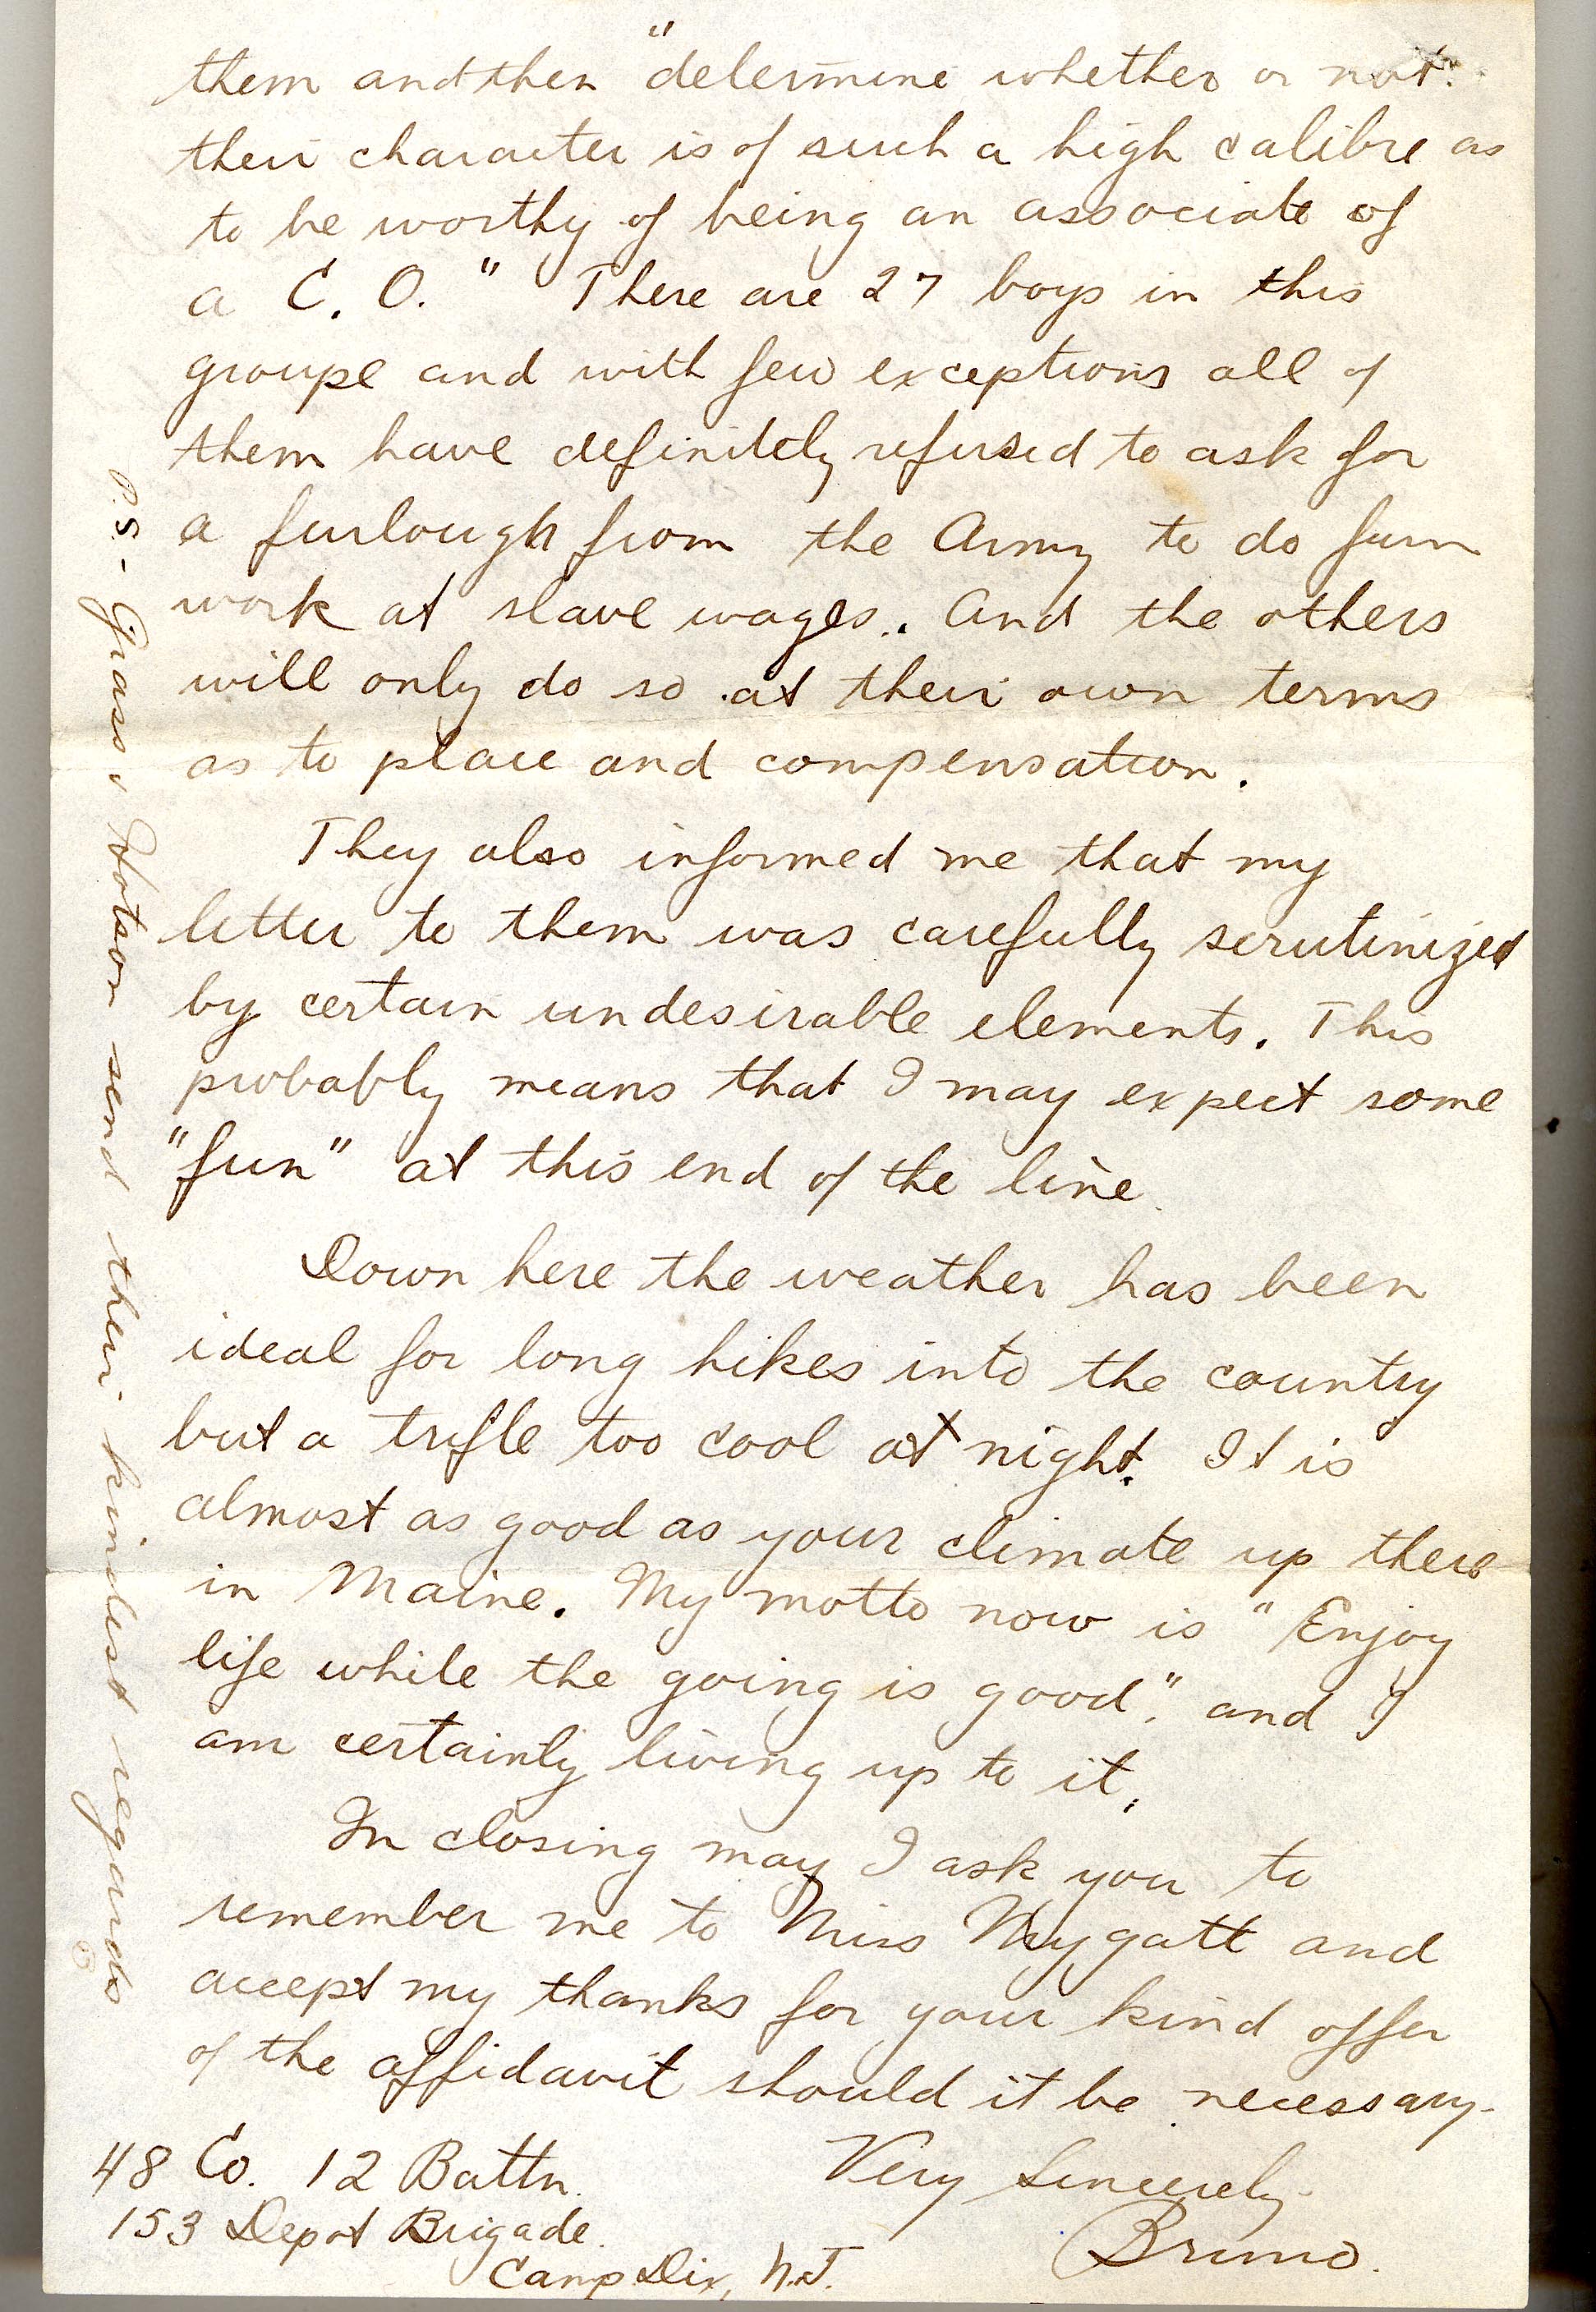 them and then "determine whether or not
their character is of such a high calibre as
to be worthy of being an associate of
a C. O." There are 27 boys in this
groupe and with few exceptions all of
them have definitely refused to ask for
a furlough from the Army to do farm
work at slave wages. And the others
will only do so at their own terms
as to place and compensation.
They also informed me that my
letter to them was carefully scrutinized
by certain undesirable elements. This
probably means that I may expect some
"fun" at this end of the line.
Down here the weather has been
ideal for long hikes into the country
but a trifle too cool at night. It is
almost as good as your climate up there
in Maine. My motto now is "Enjoy
life while the going is good". and I
am certainly living up to it.
In closing may I ask you to
remember me to Miss Mygatt and
accept my thanks for your kind offer
of the affidavit should it be necessary.
Very Sincerely.
Bruno.
48 Co. 12 Battn.
153 Depot Brigade.
Camp Dix, N.J.
P.S - Grass & Hotson send their kindest regards